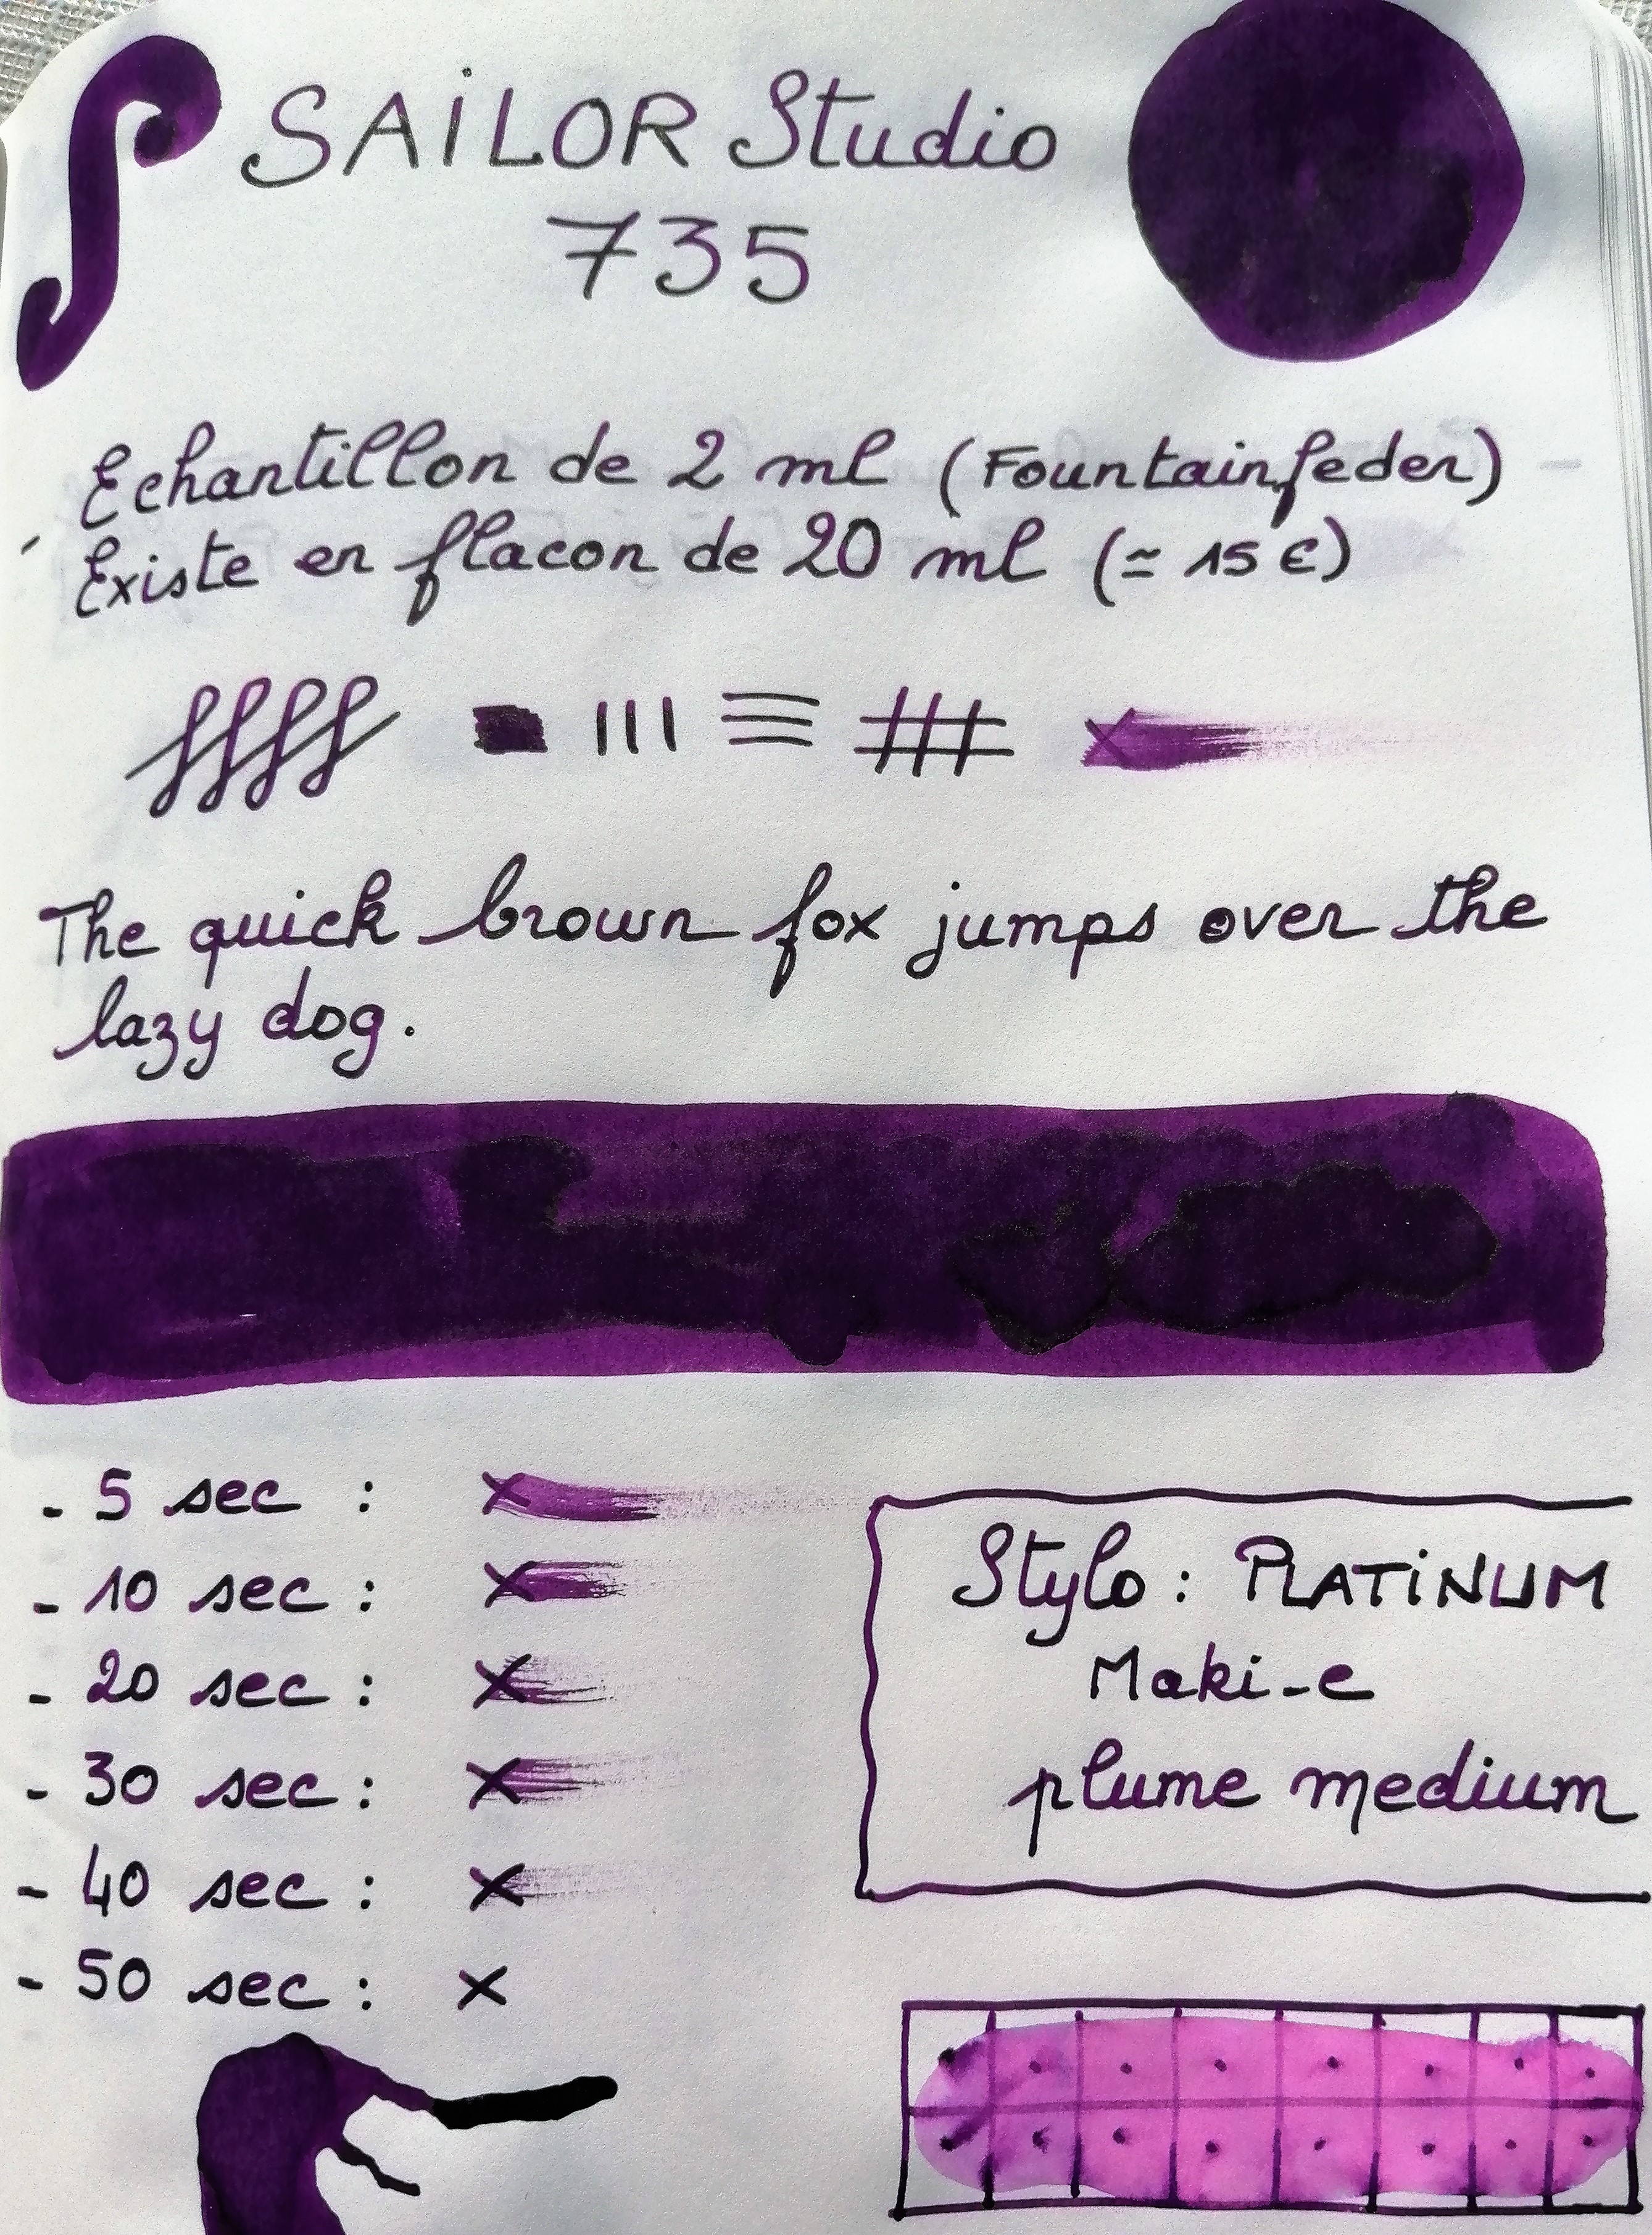 SAILOR Studio
735
Echantillon de 2 ml (Fountainfeder)
Existe en flacon de 20 ml (≃ 15 €)
The quick brown fox jumps over the
lazy dog.
- 5 sec :
- 10 sec :
- 20 sec :
- 30 sec :
- 40 sec :
- 50 sec :
Stylo : PLATINUM
Maki-e
plume medium